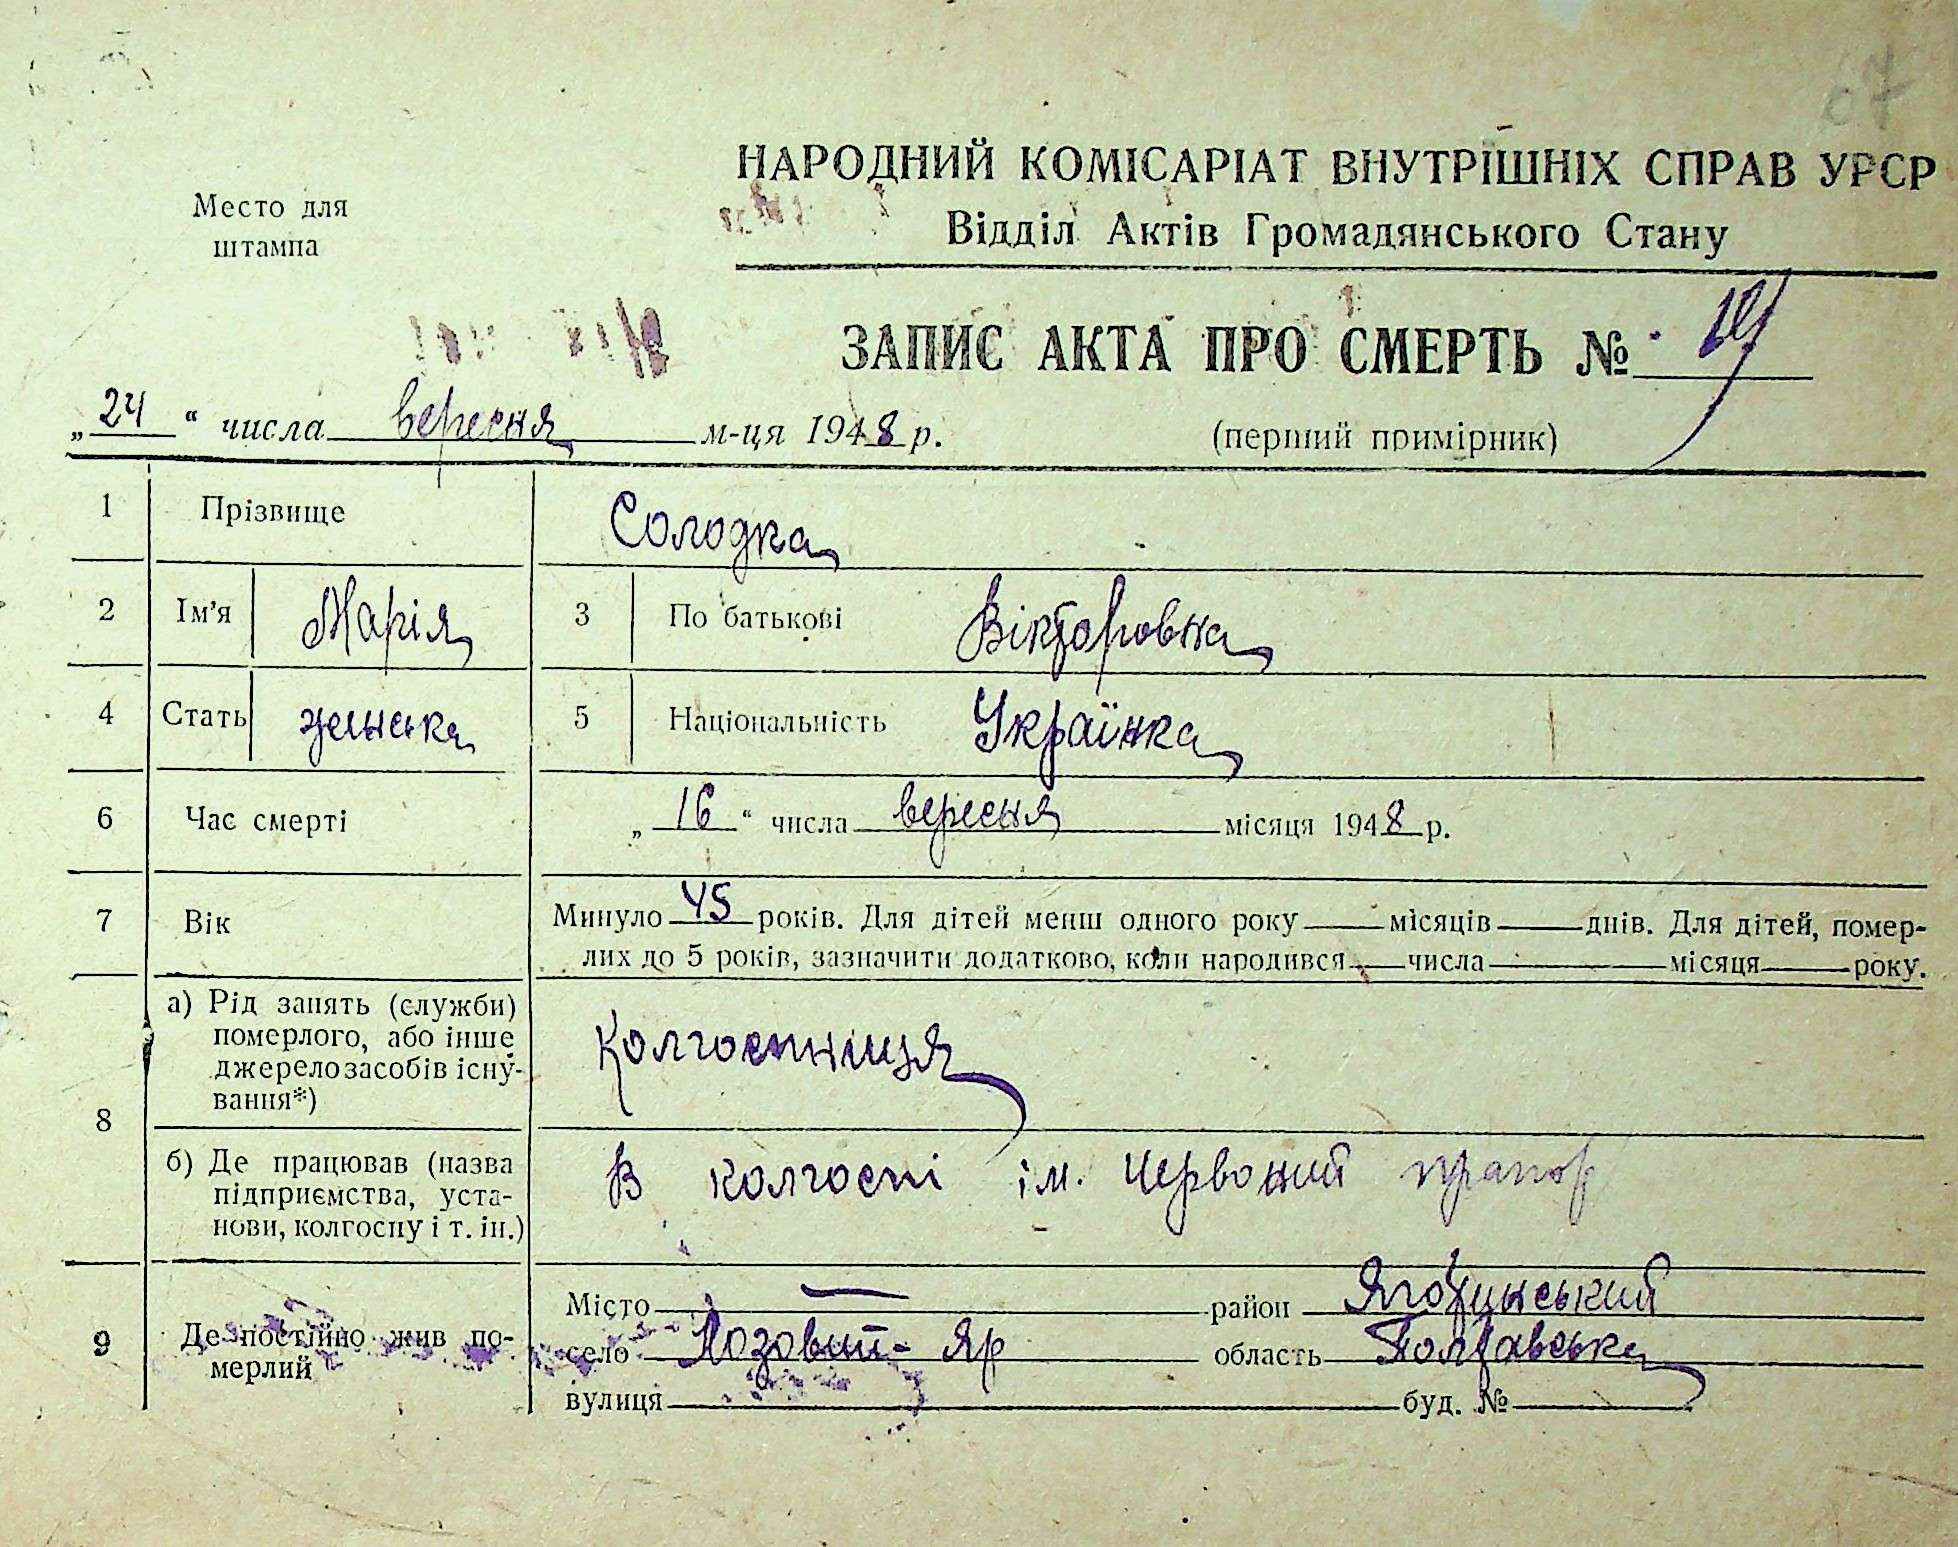 07
НАРОДНИЙ КОМІСАРІАТ ВНУТРІШНІХ СПРАВ УРСР
Место для штампа
Відділ Актів Громадянського Стану
ЗАПИС АКТА ПРО СМЕРТЬ № 19
„24“ числа вересня м-ця 1948 р.
(перший примірник)
1 Прізвище Солодка
2 Ім'я Марія 3 По батькові Вікторовна
4 Стать женська 5 Національність Українка
6 Час смерті „16“ числа вересня місяця 1948 р.
7 Вік Минуло 45 років. Для дітей менш одного року місяців днів. Для дітей, помер-
лих до 5 років, зазначити додатково, коли народився числа місяця року.
8 а) Рід занять (служби)
померлого, або інше
джерело засобів існу-
вання*)
Колгоспниця
б) Де працював (назва
підприємства, уста-
нови, колгоспу і т. ін.)
В колгоспі ім. Червоний прапор
9 Де постійно жив по-
мерлий
Місто — район Яготинський
село Лозовий-Яр область Полтавська
вулиця буд. №